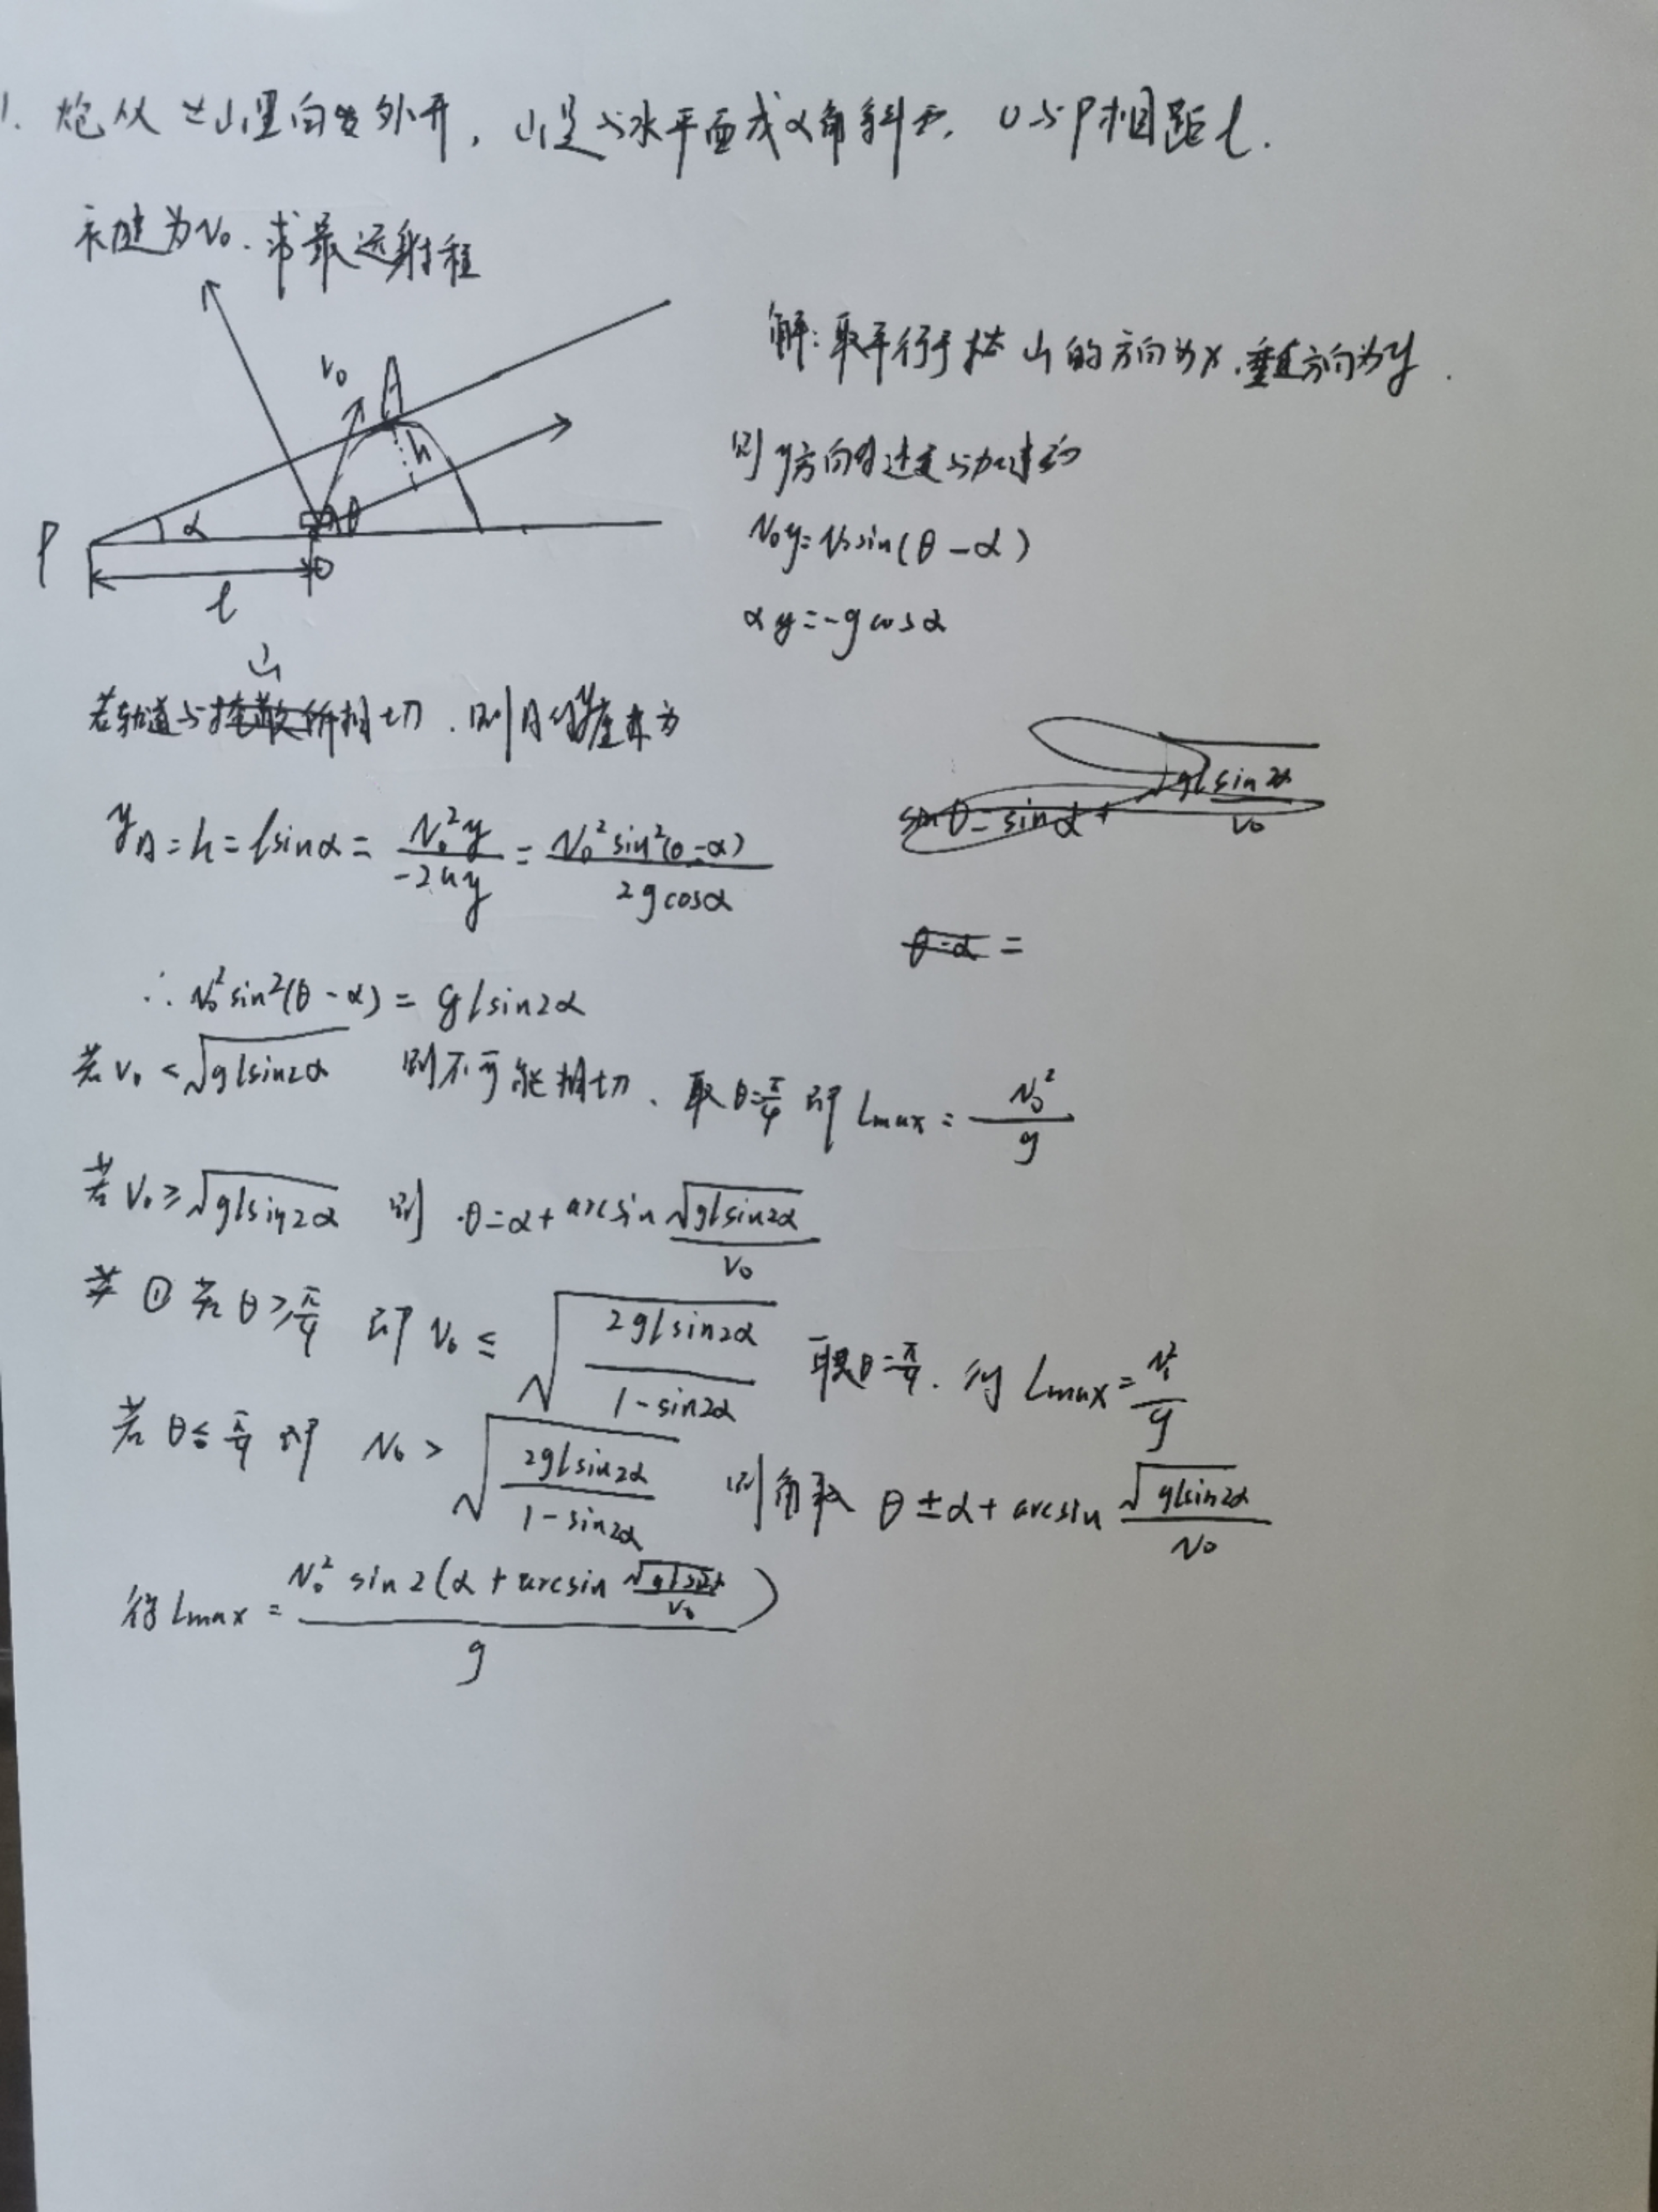 1. 炮从山里向外开，山是与水平面成α角斜面，O与P相距l.
求最远射程
解：取平行于山的方向为x，垂直方向为y.
则y方向的速度与加速为
v₀y=v₀sin(θ-α)
αy=-gcosα
v₀
A
h
P
α
θ
O
l
山
若轨道与相切，则A的y坐标为
yA=h=lsinα=v₀²y/-2ay=v₀²sin²(θ-α)/2gcosα
∴v₀²sin²(θ-α)=glsin2α
若v₀<√glsin2α 则不可能相切、取θ=π/4即Lmax=v₀²/g
若v₀≥√glsin2α 则θ=α+arcsin√glsin2α/v₀
① 若θ≥π/4 即v₀≤√2glsin2α/1-sin2α 取θ=π/4.得Lmax=v₀²/g
若θ≤π/4即 v₀>√2glsin2α/1-sin2α 则角取θ±α+arcsin√glsin2α/v₀
得Lmax=v₀²sin2(α+arcsin√glsin2α/v₀)/g